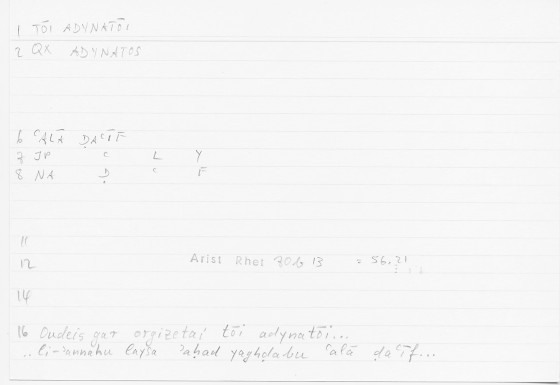 1 TŌI ADYNATŌI
2 QX ADYNATOS
6 ʿALĀ ḌAʿĪF
7 JP ʿ L Y
8 NA Ḍ ʿ F
11
12 Arist Rhet 70b 13 = 56.21
14
16 Oudeis gar orgizetai tōi adynatōi...
.. li-ʾannahu laysa ʾaḥad yaghḍabu ʿalā ḍaʿīf...